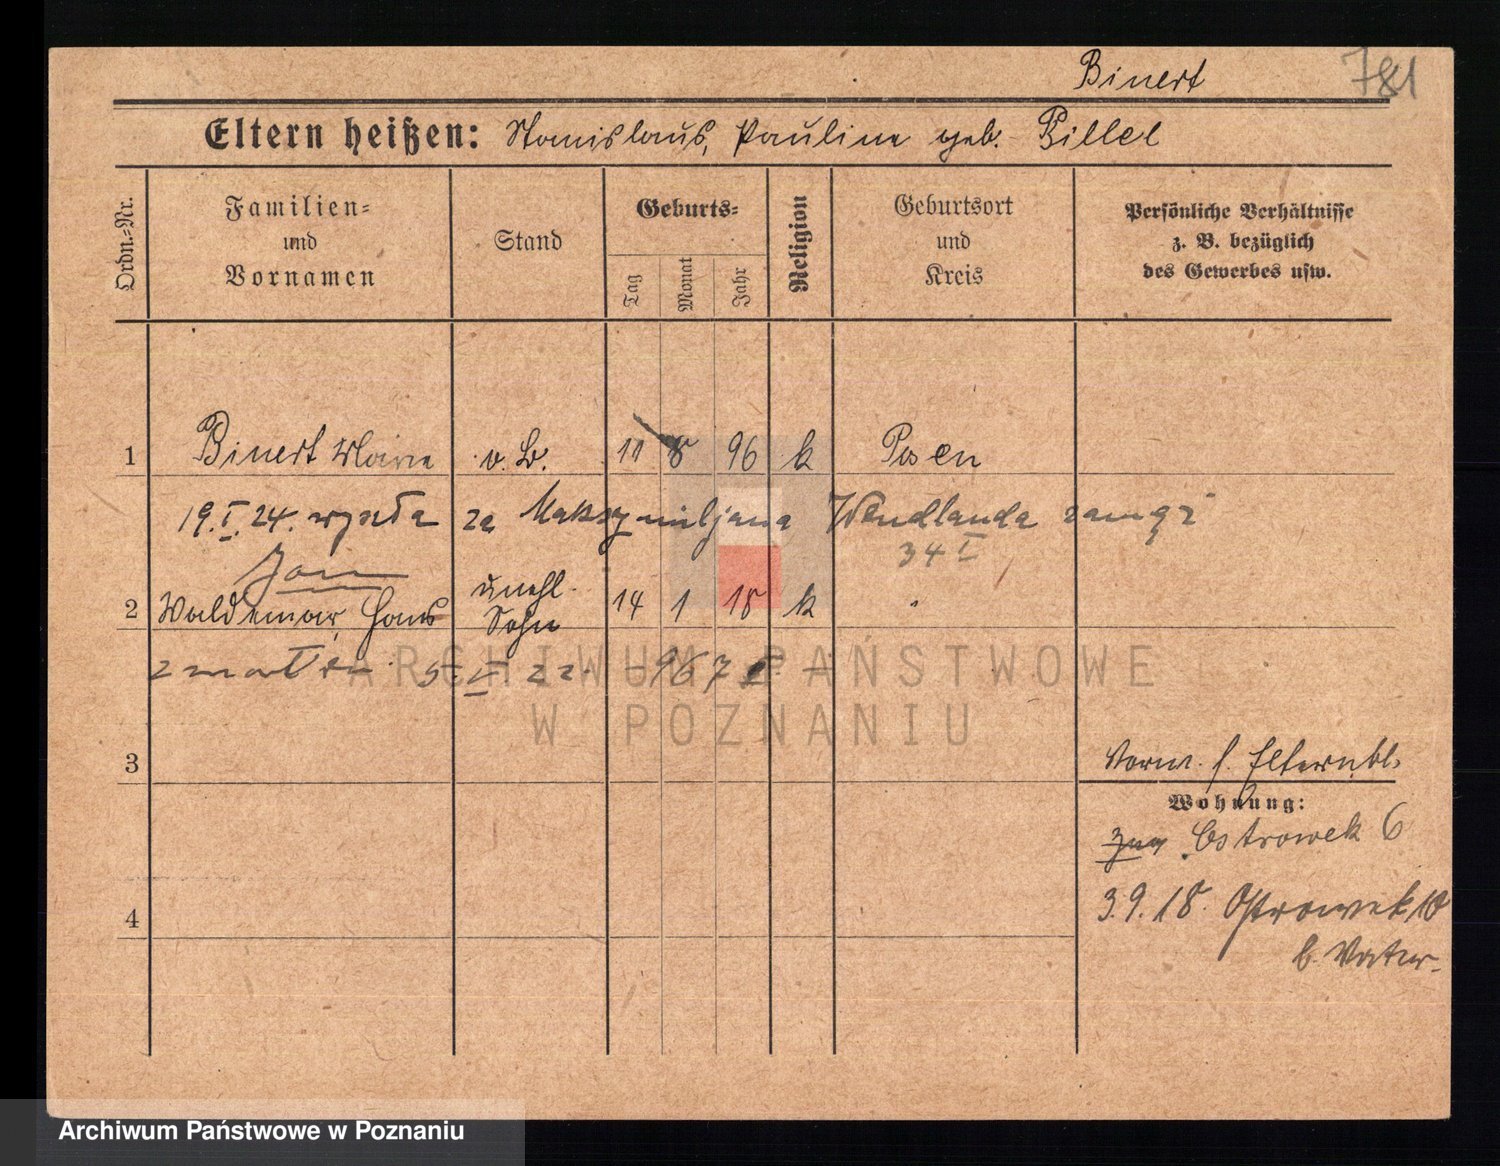 Binert 781
Eltern heißen: Stanislaus, Pauline geb. Billel
Ordn.=Nr.
Familien=
und
Vornamen
Stand
Geburts=
Tag
Monat
Jahr
Religion
Geburtsort
und
Kreis
Persönliche Verhältnisse
z. B. bezüglich
des Gewerbes usw.
1 Binert Marie o. B. 11 8 96 k Posen
19.I.24. wyszła za Maksymiljana Wendlanda zamąż
34 I
Jan
2 Waldemar, Hans unehl. Sohn 14 1 18 k "
zmarł 5 II 22. 967
ARCHIWUM PAŃSTWOWE
W POZNANIU
3
Vorm. s. Elternbl.
Wohnung:
Ostrowek 6
4
3.9.18. Ostrowek 10
b. Vater.
Archiwum Państwowe w Poznaniu